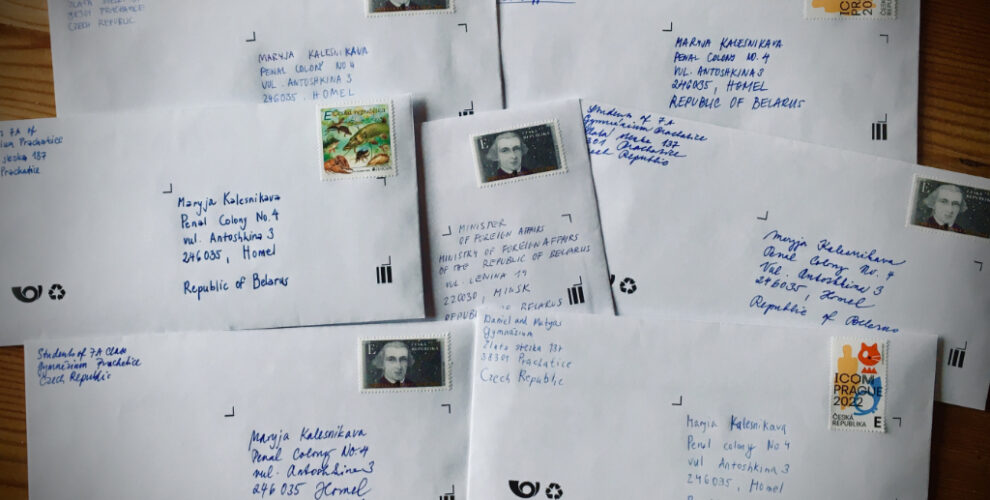 PRACHATICE
CZECH REPUBLIC
MARYJA KALESNIKAVA
PENAL COLONY NO 4
VUL. ANTOSHKINA 3
246035, HOMEL
ICOM
PRAGUE
MARYJA KALESNIKAVA
PENAL COLONY NO. 4
VUL. ANTOSHKINA 3
246035, HOMEL
REPUBLIC OF BELARUS
7A of
Prachatice
137
Prachatice
E Česká republika
Maryja Kalesnikava
Penal Colony No. 4
vul. Antoshkina 3
246035, Homel
Republic of Belarus
E
ČESKÁ
REPUBLIKA
MINISTER
OF FOREIGN AFFAIRS
MINISTRY OF FOREIGN AFFAIRS
OF THE REPUBLIC OF BELARUS
VUL. LENINA 19
220030, MINSK
REPUBLIC OF BELARUS
Students of 7A
Gymnázium Prachatice
Zlatá stezka 137
38301 Prachatice
Czech Republic
E
ČESKÁ
REPUBLIKA
Maryja Kalesnikava
Penal Colony No. 4
Vul. Antoshkina 3
246035, Homel
Republic of Belarus
Students of 7A Class
Gymnázium Prachatice
Czech Republic
E
ČESKÁ
REPUBLIKA
Maryja Kalesnikava
Penal Colony No. 4
vul. Antoshkina 3
246 035 Homel
Daniel and Matyas
Gymnásium
Zlatá stezka 137
38301 Prachatice
Czech Republic
ICOM
PRAGUE
2022
ČESKÁ
REPUBLIKA
E
Maryia Kalesnikava
Penal colony No 4
vul Antoshkina 3
246035, Homel